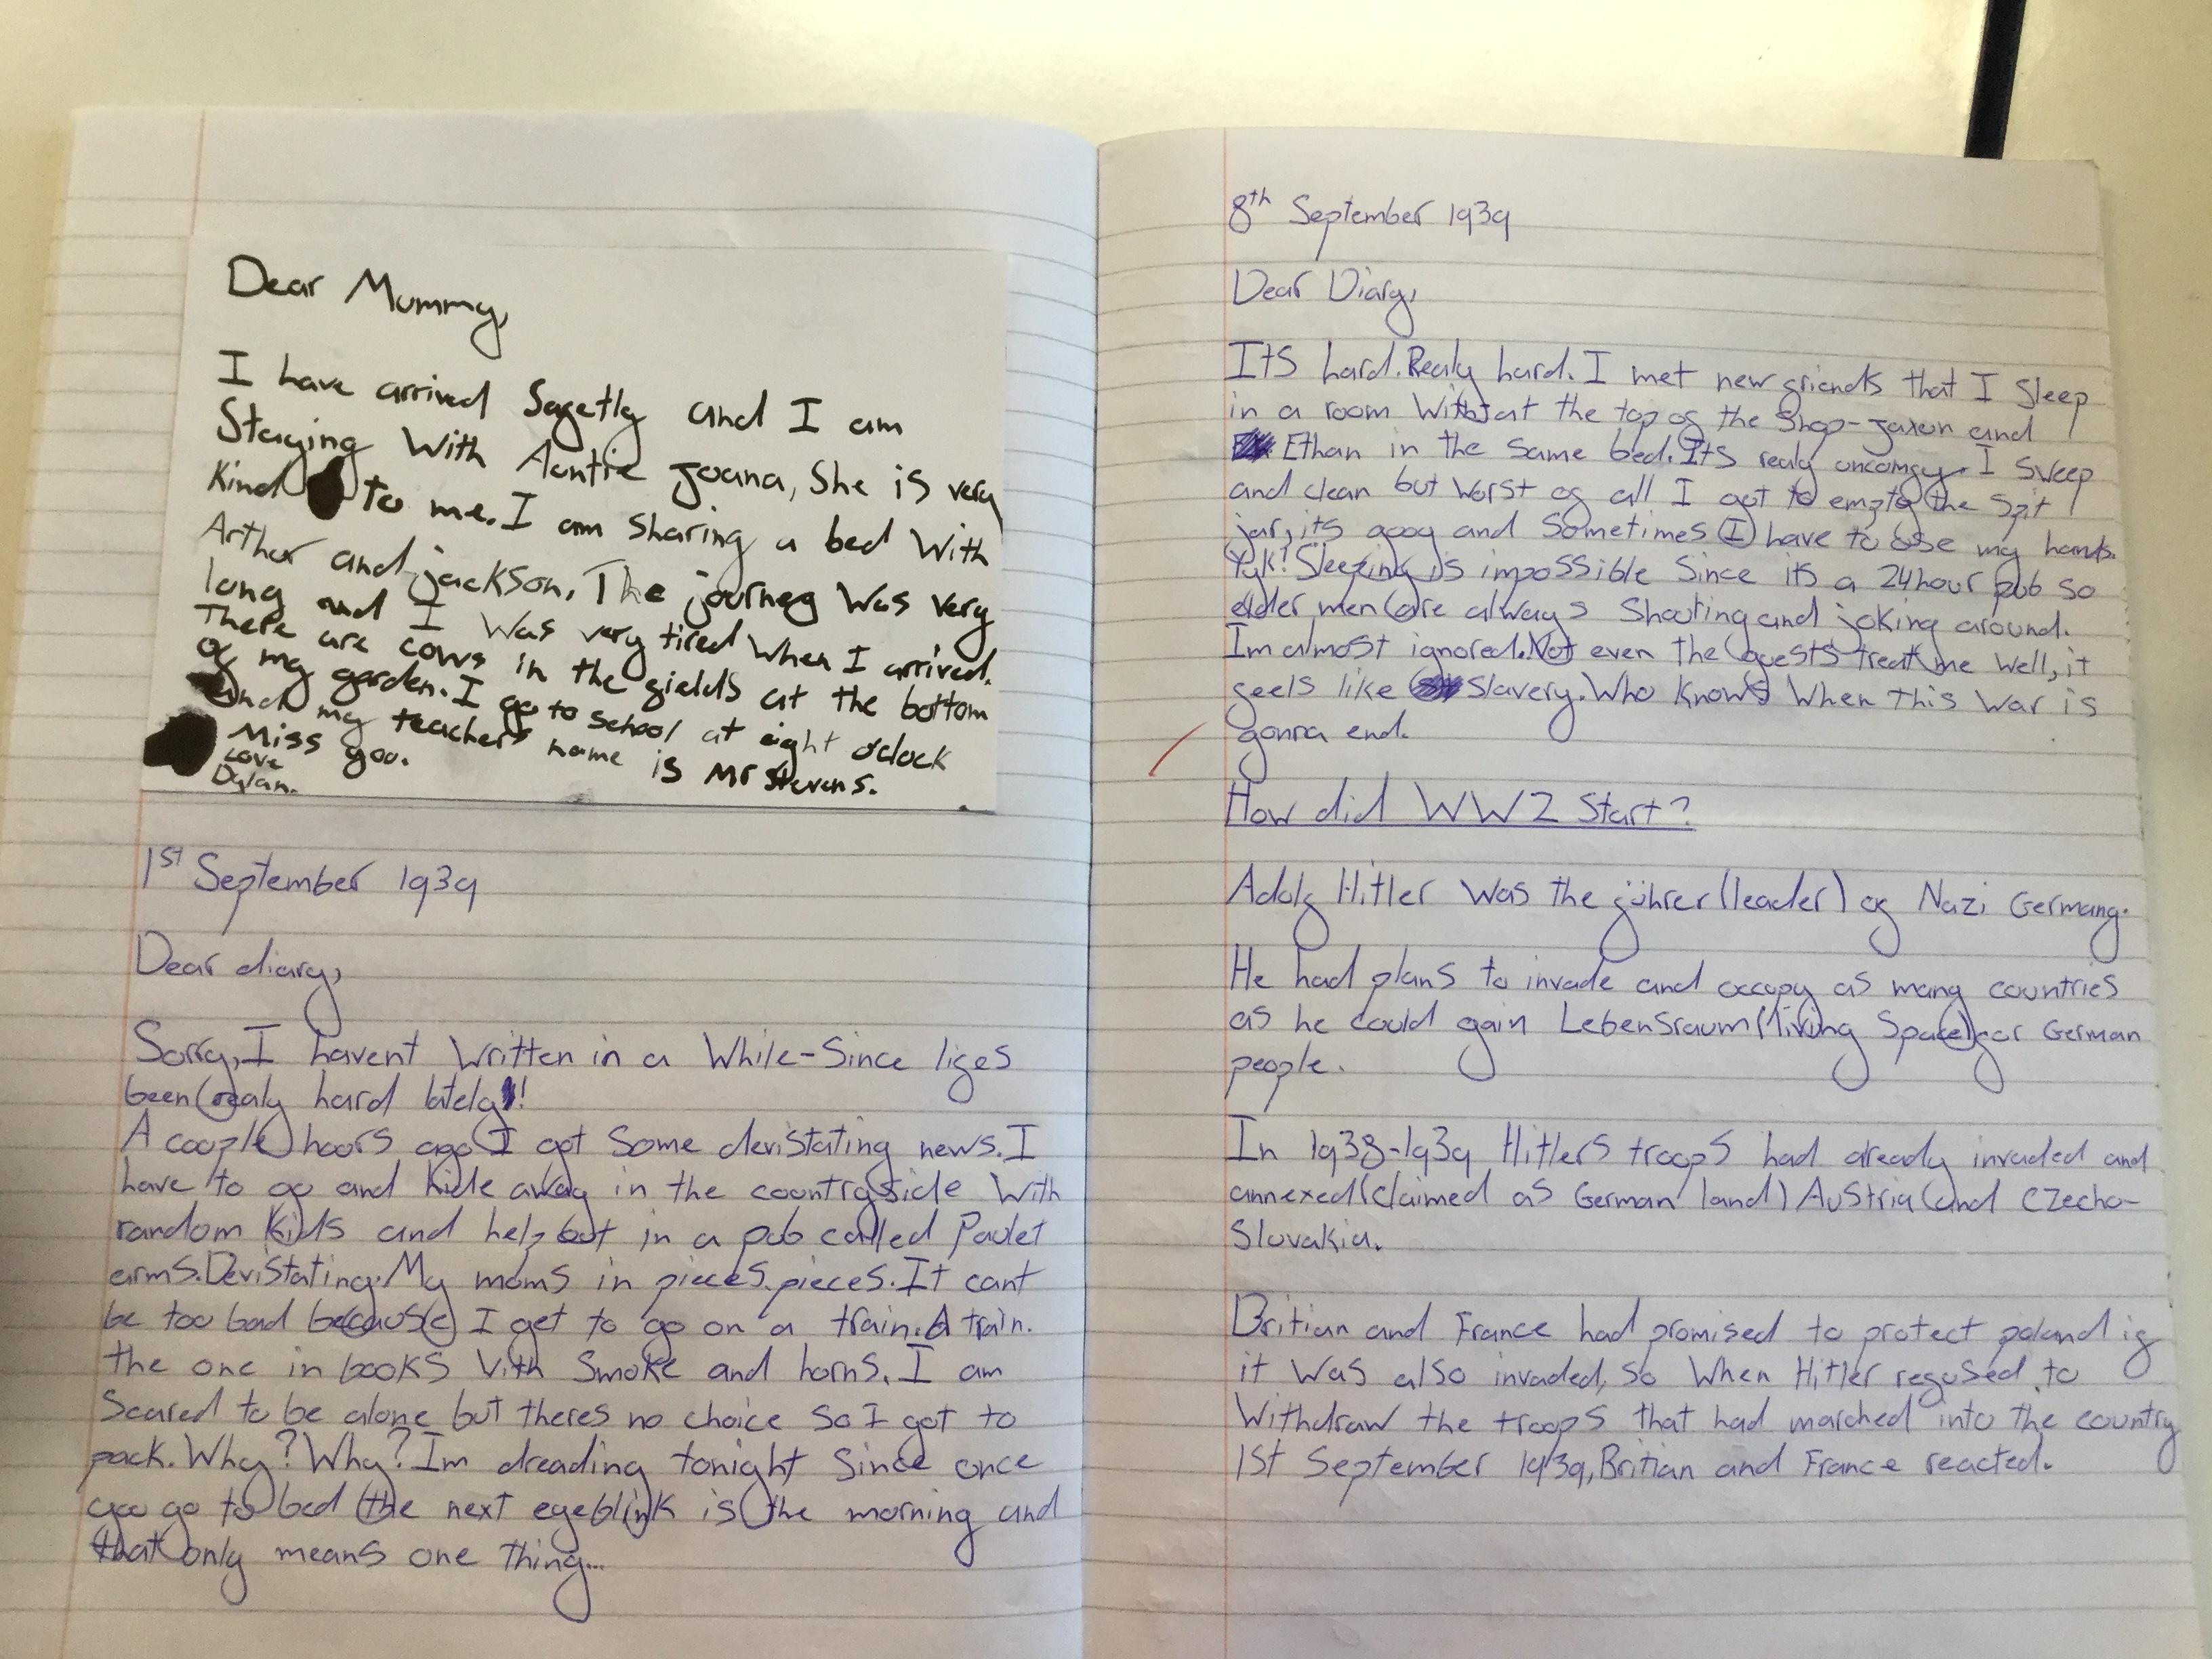 Dear Mummy,
I have arrived Safetly and I am
Staying With Auntie Joana, She is very
Kind to me. I am Sharing a bed With
Arthur and jackson. The journey Was Very
long and I Was very tired When I arrived.
There are cows in the fields at the bottom
of my garden. I go to school at eight o'clock
and my teachers name is Mr Stevens.
Miss you.
Love
Dylan.
1st September 1939
Dear diary,
Sorry, I havent Written in a While-Since lifes
been realy hard lately!
A couple hours ago I got Some devistating news. I
have to go and hide away in the countryside With
random Kids and help out in a pub called Paulet
arms. Devistating. My moms in pieces. pieces. It cant
be too bad because I get to go on a train. A train.
the one in books With Smoke and horns. I am
Scared to be alone but theres no choice so I got to
pack. Why? Why? Im dreading tonight Since once
you go to bed the next eyeblink is the morning and
that only means one thing...
8th September 1939
Dear Diary,
Its hard. Realy hard. I met new friends that I Sleep
in a room With at the top of the Shop-Jaxon and
Ethan in the same bed. Its realy uncomfy. I sweep
and clean but Worst of all I got to empty the Spit
jar, its gooy and Sometimes I have to use my hands.
Yuk! Sleeping is impossible Since its a 24hour pub so
elder men are always Shouting and joking around.
Im almost ignored. Not even the guests treat me Well, it
feels like Slavery. Who Knows When this War is
gonna end.
How did WW2 Start?
Adolf Hitler Was the führer (leader) of Nazi Germany.
He had plans to invade and occupy as many countries
as he could gain Lebensraum (living Space) for German
people.
In 1938-1939 Hitlers troops had already invaded and
annexed (claimed as German land) Austria (and Czecho-
Slovakia.
Britian and France had promised to protect poland if
it Was also invaded, So When Hitler refused to
Withdraw the troops that had marched into the country
1st September 1939, Britian and France reacted.